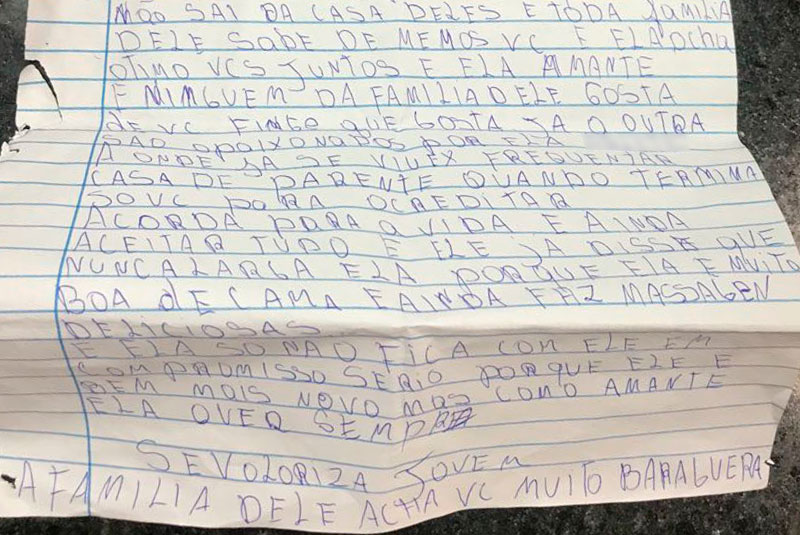 NÃO SAI DA CASA DELES E TODA família
DELE SABE DE MEMOS VC E ELA OCHA
OTIMO VCS JUNTOS E ELA AMANTE
E NIMGUEM DA FAMILIA DELE GOSTA
de VC FINGE QUE GOSTA JA O OUTRA
SÃO apaixonados por ELA
A ONDE JA SE VIU EX FREQUENTAR
CASA DE PARENTE QUANDO TERMINA
SO VC PARA OCREDITAR
ACORDA PARA a VIDA E AINDA
ACEITAR TUDO E ELE JA DISSE QUE
NUNCA LARGA ELA PORQUE ELA E MUITO
BOA de CAMA E AINDA FAZ MASSAGEN
DELICIOSAS
E ELA SO NÃO FICA COM ELE EM
COMPROMISSO SERIO PORQUE ELE E
BEM MAIS NOVO MAS COMO AMANTE
ELA QUER SEMPRE
SE VOLORIZA JOVEM
A FAMILIA DELE ACHA VC MUITO BARAGUERA